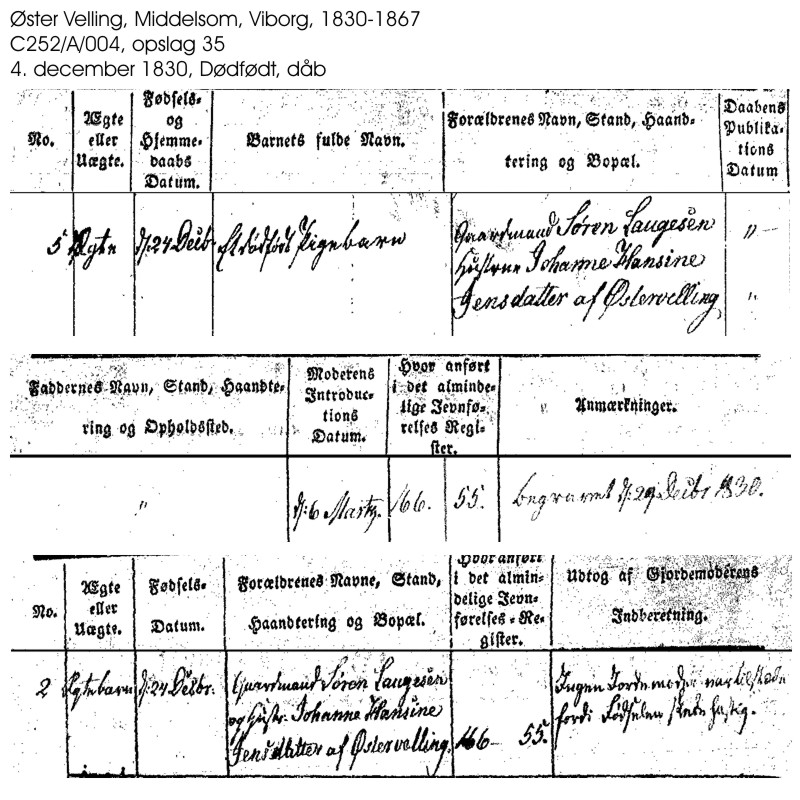 Øster Velling, Middelsom, Viborg, 1830-1867
C252/A/004, opslag 35
4. december 1830, Dødfødt, dåb
No.
Ægte
eller
Uægte.
Fødsels-
og
Hjemme-
daabs
Datum.
Barnets fulde Navn.
Forældrenes Navn, Stand, Haand-
tering og Bopæl.
Daabens
Publika-
tions
Datum
5
Ægte
d: 24 Decbr
Et dødfødt Pigebarn
Gaardmand Søren Laugesen
Hustrue Johanne Hansine
Jensdatter af Østervelling
"
"
Faddernes Navn, Stand, Haandte-
ring og Opholdssted.
Moderens
Introduc-
tions
Datum.
Hvor anført
i det alminde-
lige Jevnfø-
relses Regi-
ster.
Anmærkninger.
"
d: 6 Martz.
166.
55.
begravet d: 29 Decbr 1830.
No.
Ægte
eller
Uægte.
Fødsels-
Datum.
Forældrenes Navne, Stand,
Haandtering og Bopæl.
Hvor anført
i det almin-
delige Jevn-
førelses-Re-
gister.
Udtog af Gjordemoderens
Indberetning.
2
Ægtebarn
d: 24 Decbr.
Gaardmand Søren Laugesen
og Hustr. Johanne Hansine
Jensdatter af Østervelling
166-
55.
Ingen Jordemoder var tilstæde
fordi Fødselen skede hastig.